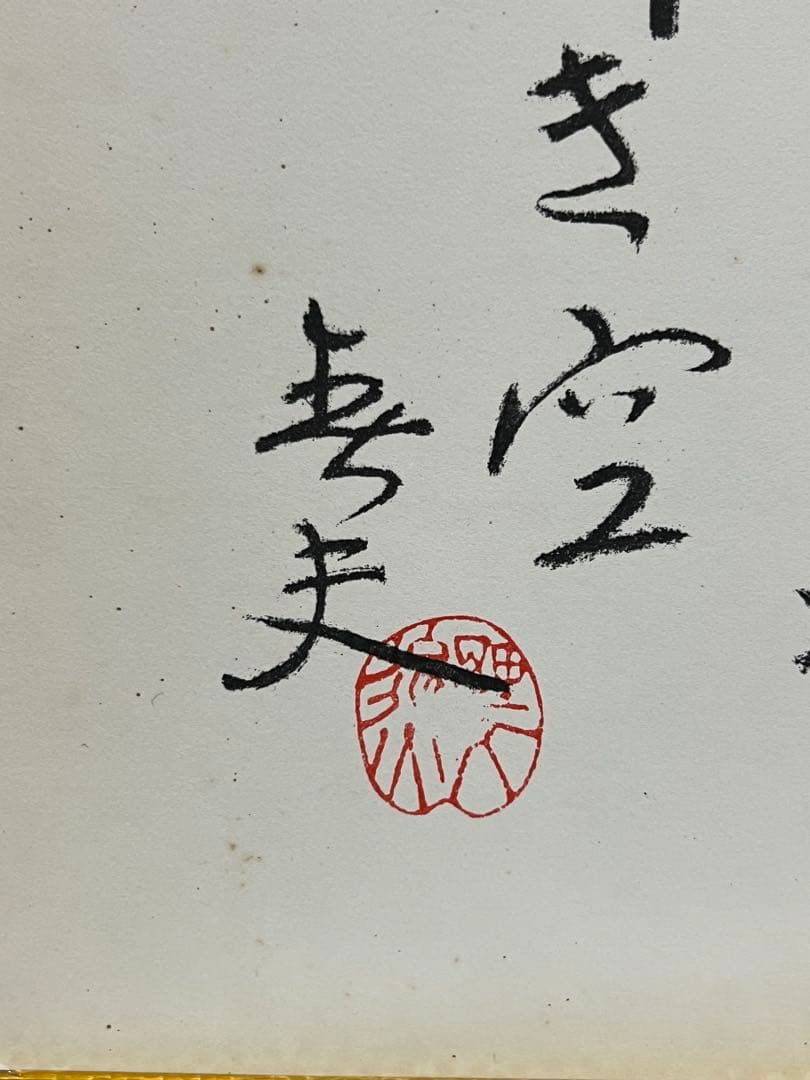 き空
春夫